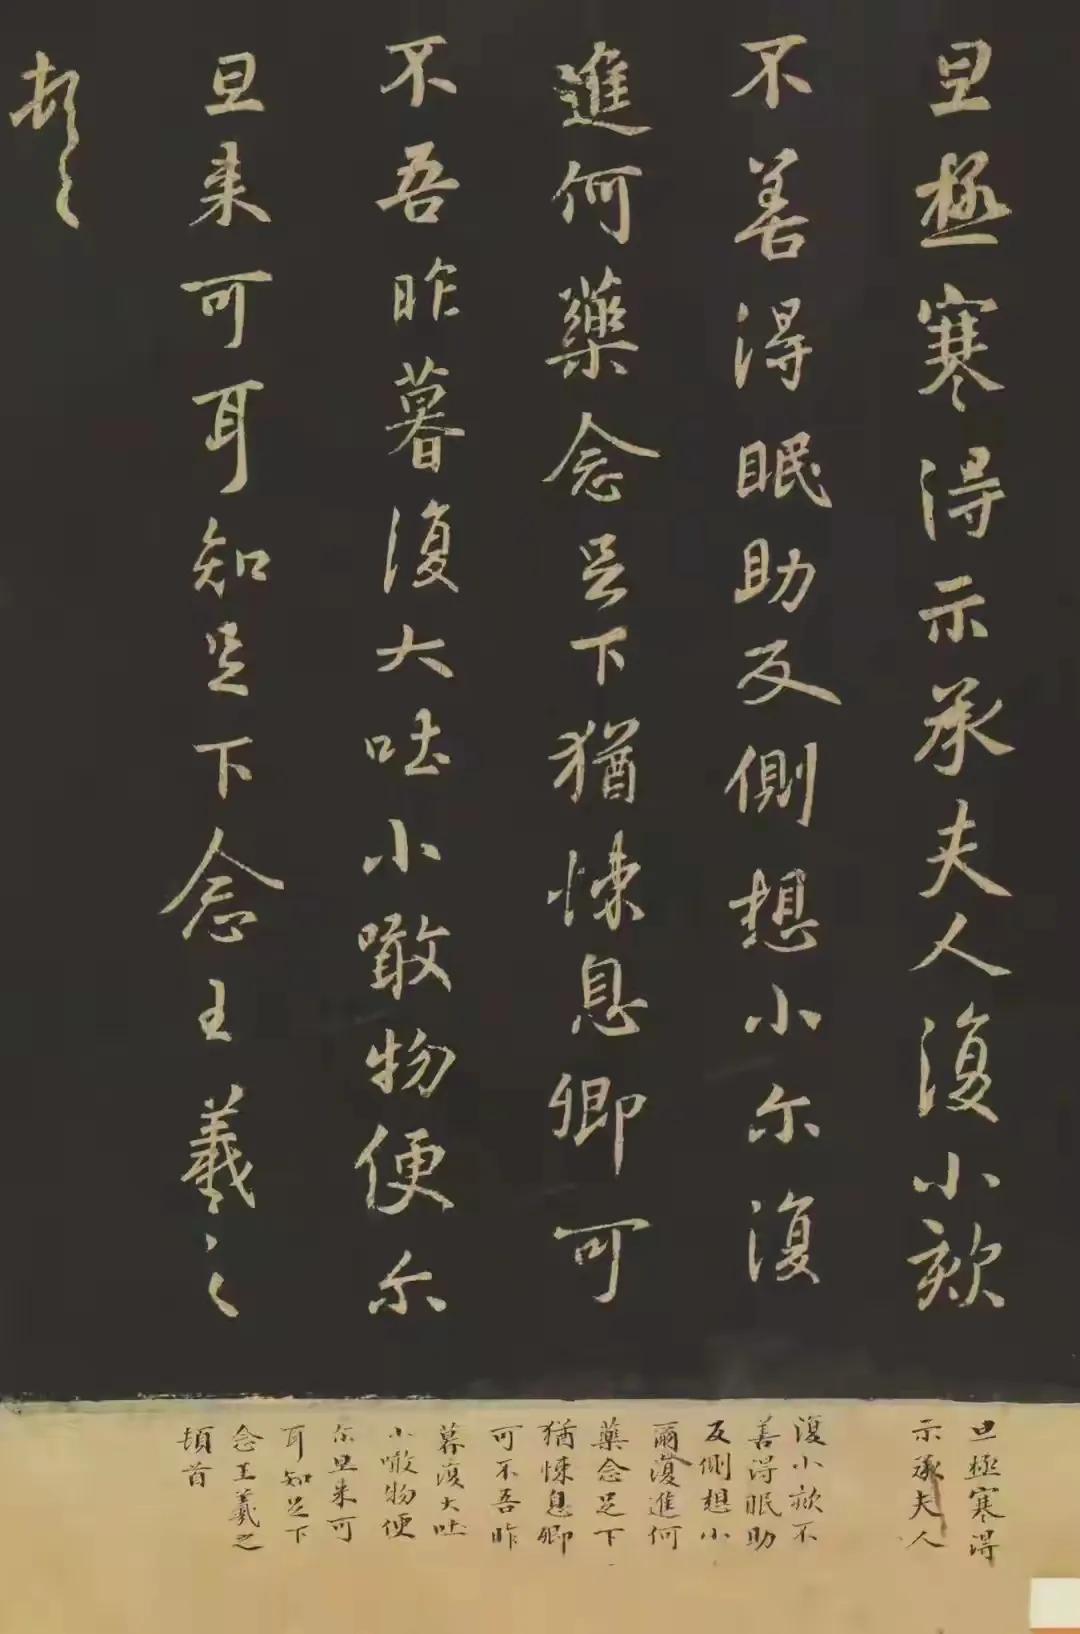 旦極寒得示承夫人復小欬
不善得眠助反側想小尓復
進何藥念足下猶悚息卿可
不吾昨暮復大吐小噉物便尓
旦来可可耳知足下念王羲之
頓首
旦極寒得
示承夫人
復小欬不
善得眠助
反側想小
爾復進何
藥念足下
猶悚息卿
可不吾昨
暮復大吐
小噉物便
尓旦来可
耳知足下
念王羲之
頓首